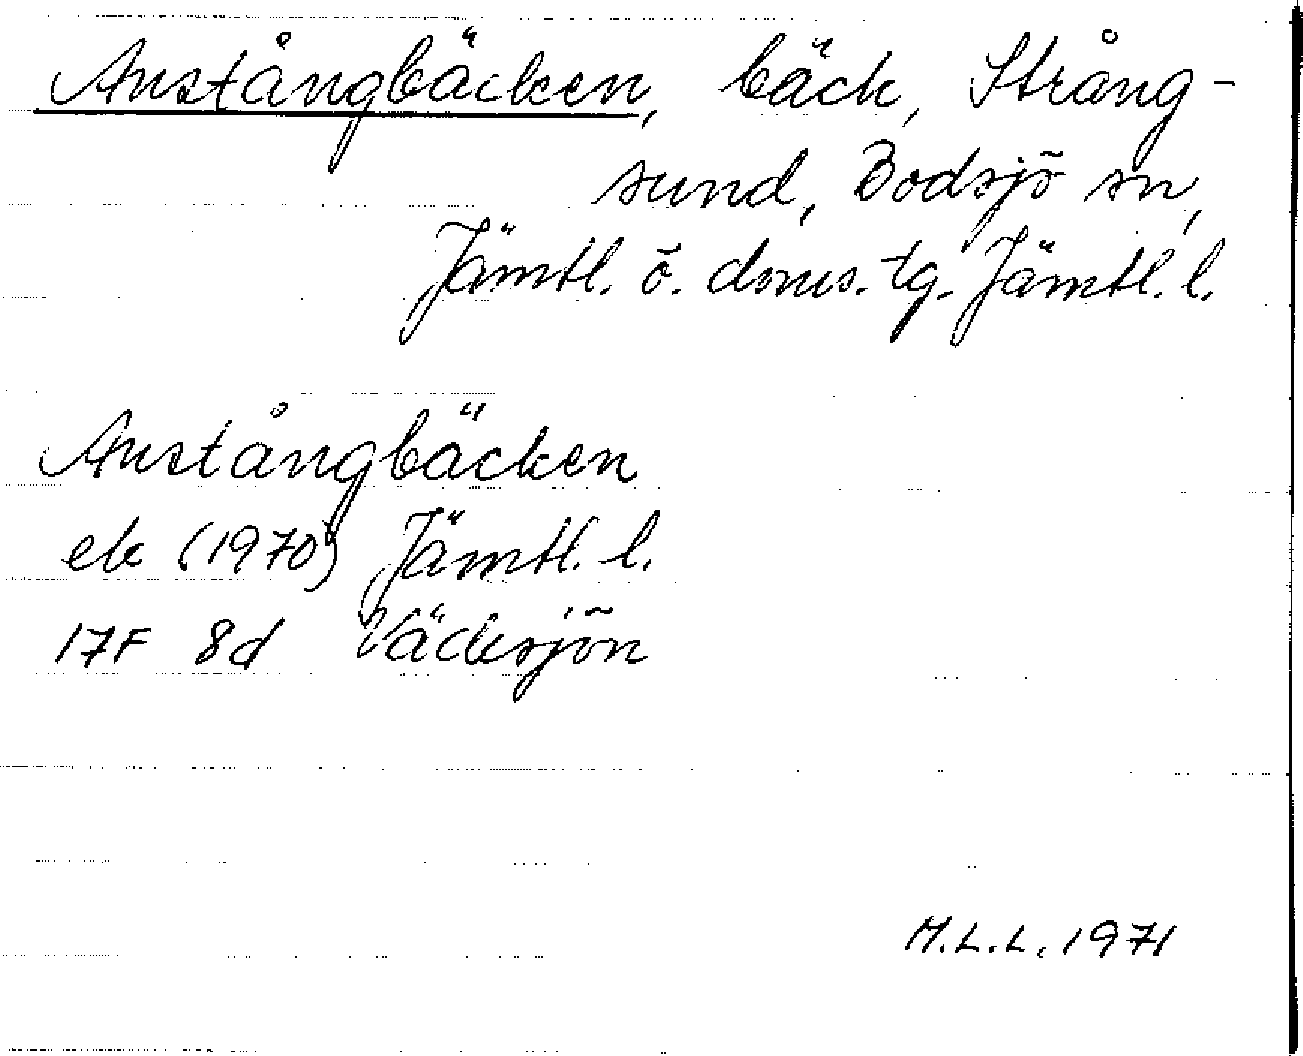 Anstångbäcken, bäck, Strång-
sund, Bodsjö sn,
Jämtl. ö. doms. tg. Jämtl. l.
Anstångbäcken
ek (1970) Jämtl. l.
17F 8d Väcksjön
M.L.L. 1971